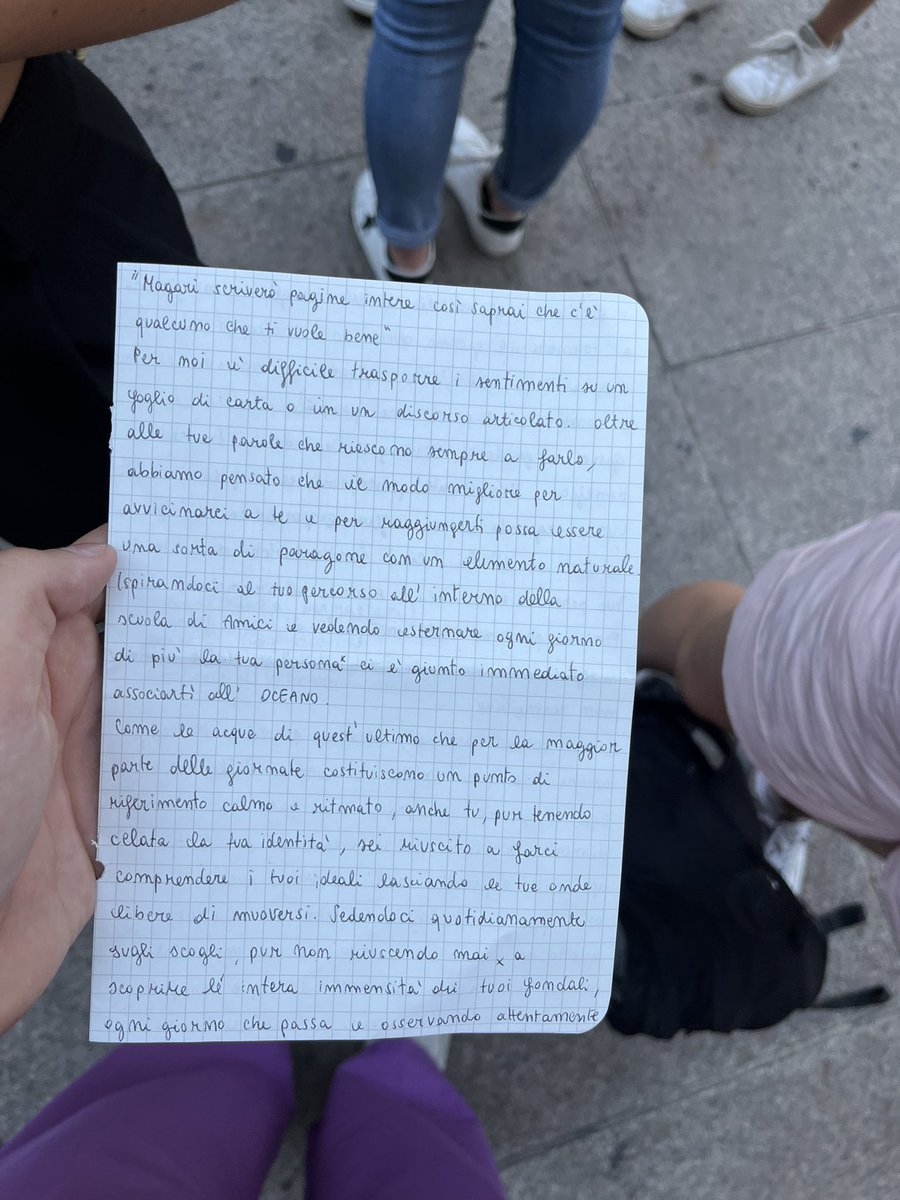 "Magari scriverò pagine intere così saprai che c'è
qualcuno che ti vuole bene"
Per noi è difficile trasporre i sentimenti su un
foglio di carta o in un discorso articolato. Oltre
alle tue parole che riescono sempre a farlo,
abbiamo pensato che il modo migliore per
avvicinarci a te e per raggiungerti possa essere
una sorta di paragone con un elemento naturale.
Ispirandoci al tuo percorso all'interno della
scuola di Amici e vedendo esternare ogni giorno
di più la tua persona* ci è giunto immediato
associarti all' OCEANO.
Come le acque di quest'ultimo che per la maggior
parte delle giornate costituiscono un punto di
riferimento calmo e ritmato, anche tu, pur tenendo
celata la tua identità, sei riuscito a farci
comprendere i tuoi ideali lasciando le tue onde
libere di muoversi. Sedendoci quotidianamente
sugli scogli, pur non riuscendo mai x a
scoprire l'intera immensità dei tuoi fondali,
ogni giorno che passa e osservando attentamente